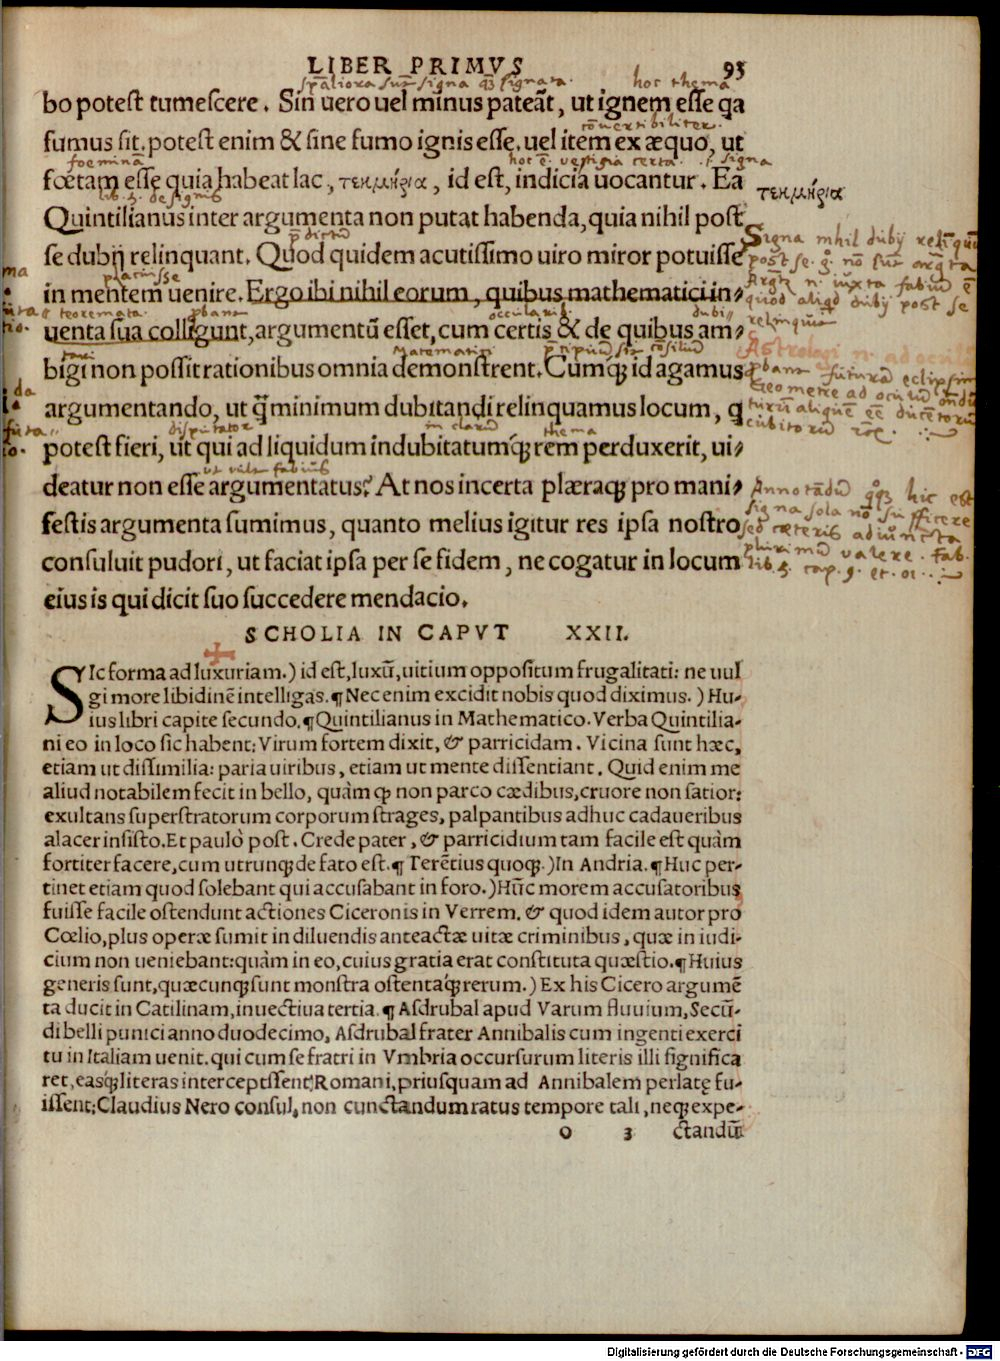 LIBER PRIMVS 93
sp̄aliora sūt signa q̄ȝ signata. hoc thema
bo potest tumescere. Sin uero uel minus pateāt, ut ignem esse q̄a
cōuertibiliter.
fumus sit. potest enim & sine fumo ignis esse. uel item ex æquo, ut
foeminā hoc ē. vestigia certa. signa
fœtam esse quia habeat lac, τεκμήρια, id est, indicia uocantur. Ea
τεκμήρια
lib. 5. de signis
Quintilianus inter argumenta non putat habenda, quia nihil post
p̄dictū
se dubij relinquant. Quod quidem acutissimo uiro miror potuisse
placuisse
in mentem uenire. Ergo ibi nihil eorum, quibus mathematici in⸗
teoremata. ocularib. dubi
uenta sua colligunt, argumentū esset, cum certis & de quibus am⸗
Matematici
bigi non possit rationibus omnia demonstrent. Cumq; id agamus
argumentando, ut q̄ minimum dubitandi relinquamus locum, q
disputator in clarū thema
potest fieri, ut qui ad liquidum indubitatumq́; rem perduxerit, ui⸗
ut vult fabius
deatur non esse argumentatus? At nos incerta plæraq; pro mani⸗
festis argumenta sumimus, quanto melius igitur res ipsa nostro
consuluit pudori, ut faciat ipsa per se fidem, ne cogatur in locum
eius is qui dicit suo succedere mendacio.
Signa nihil dubij relīquūt
post se. nō sūt
iuxta fabiū ē
quod aliqd dubij post se
relinquūt
Astrologi n. ad oculū
futurā eclipsim
Geometre ad oculū
Annotādū hic est
signa sola nō sufficere
sed cæteris adiūncta
plurimū valere. Fab.
lib. 5. cap. 9. et. 01.
SCHOLIA IN CAPVT XXII.
SIc forma ad luxuriam.) id est, luxū, uitium oppositum frugalitati: ne uul
gi more libidinē intelligas. ¶ Nec enim excidit nobis quod diximus.) Hu-
ius libri capite secundo. ¶ Quintilianus in Mathematico. Verba Quintilia-
ni eo in loco sic habent: Virum fortem dixit, & parricidam. Vicina sunt hæc,
etiam ut dissimilia: paria uiribus, etiam ut mente dissentiant. Quid enim me
aliud notabilem fecit in bello, quàm q̄ non parco cædibus, cruore non satior:
exultans superstratorum corporum strages, palpantibus adhuc cadaueribus
alacer insisto. Et paulò post. Crede pater, & parricidium tam facile est quàm
fortiter facere, cum utrunq; de fato est. ¶ Terētius quoq;.) In Andria. ¶ Huc per-
tinet etiam quod solebant qui accusabant in foro.) Hūc morem accusatoribus
fuisse facile ostendunt actiones Ciceronis in Verrem. & quod idem autor pro
Cœlio, plus operæ sumit in diluendis anteactæ uitæ criminibus, quæ in iudi-
cium non ueniebant: quàm in eo, cuius gratia erat constituta quæstio. ¶ Huius
generis sunt, quæcunq; sunt monstra ostentaq́; rerum.) Ex his Cicero argumē
ta ducit in Catilinam, inuectiua tertia. ¶ Asdrubal apud Varum fluuium, Secū-
di belli punici anno duodecimo, Asdrubal frater Annibalis cum ingenti exerci
tu in Italiam uenit. qui cum se fratri in Vmbria occursurum literis illi significa
ret, easq́; literas intercepissent Romani, priusquam ad Annibalem perlatę fu-
issent: Claudius Nero consul, non cunctandum ratus tempore tali, neq; expe-
o 3 ctandū
Digitalisierung gefördert durch die Deutsche Forschungsgemeinschaft - DFG